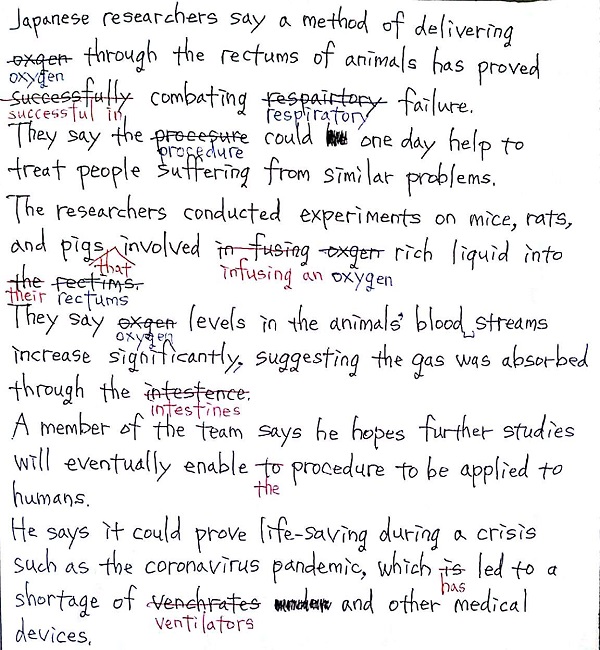 Japanese researchers say a method of delivering
oxgen through the rectums of animals has proved
oxygen
successfully combating respairtory failure.
successful in respiratory
They say the procesure could one day help to
procedure
treat people suffering from similar problems.
The researchers conducted experiments on mice, rats,
and pigs, involved in fusing oxgen rich liquid into
that infusing an oxygen
the rectims.
their rectums
They say oxgen levels in the animals' blood streams
oxygen
increase significantly, suggesting the gas was absorbed
through the intestence.
intestines
A member of the team says he hopes further studies
will eventually enable to procedure to be applied to
the
humans.
He says it could prove life-saving during a crisis
such as the coronavirus pandemic, which is led to a
has
shortage of venchrates and other medical
ventilators
devices.